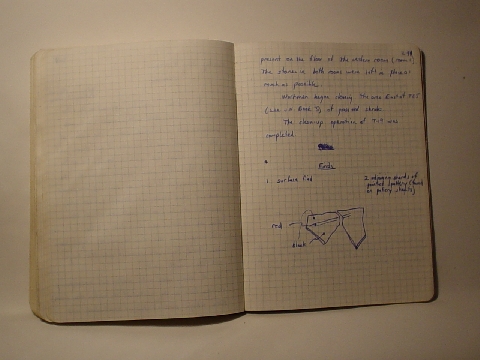 present on the floor of the western room (room
The stones in both rooms were left in place as
much as possible.
Workmen began cleaning the area East of
of ground shrubs.
The clean-up operation of was
completed.
Finds
1. surface find
2 adjoining sherds of
painted pottery (found
on pottery sherds)
red
black